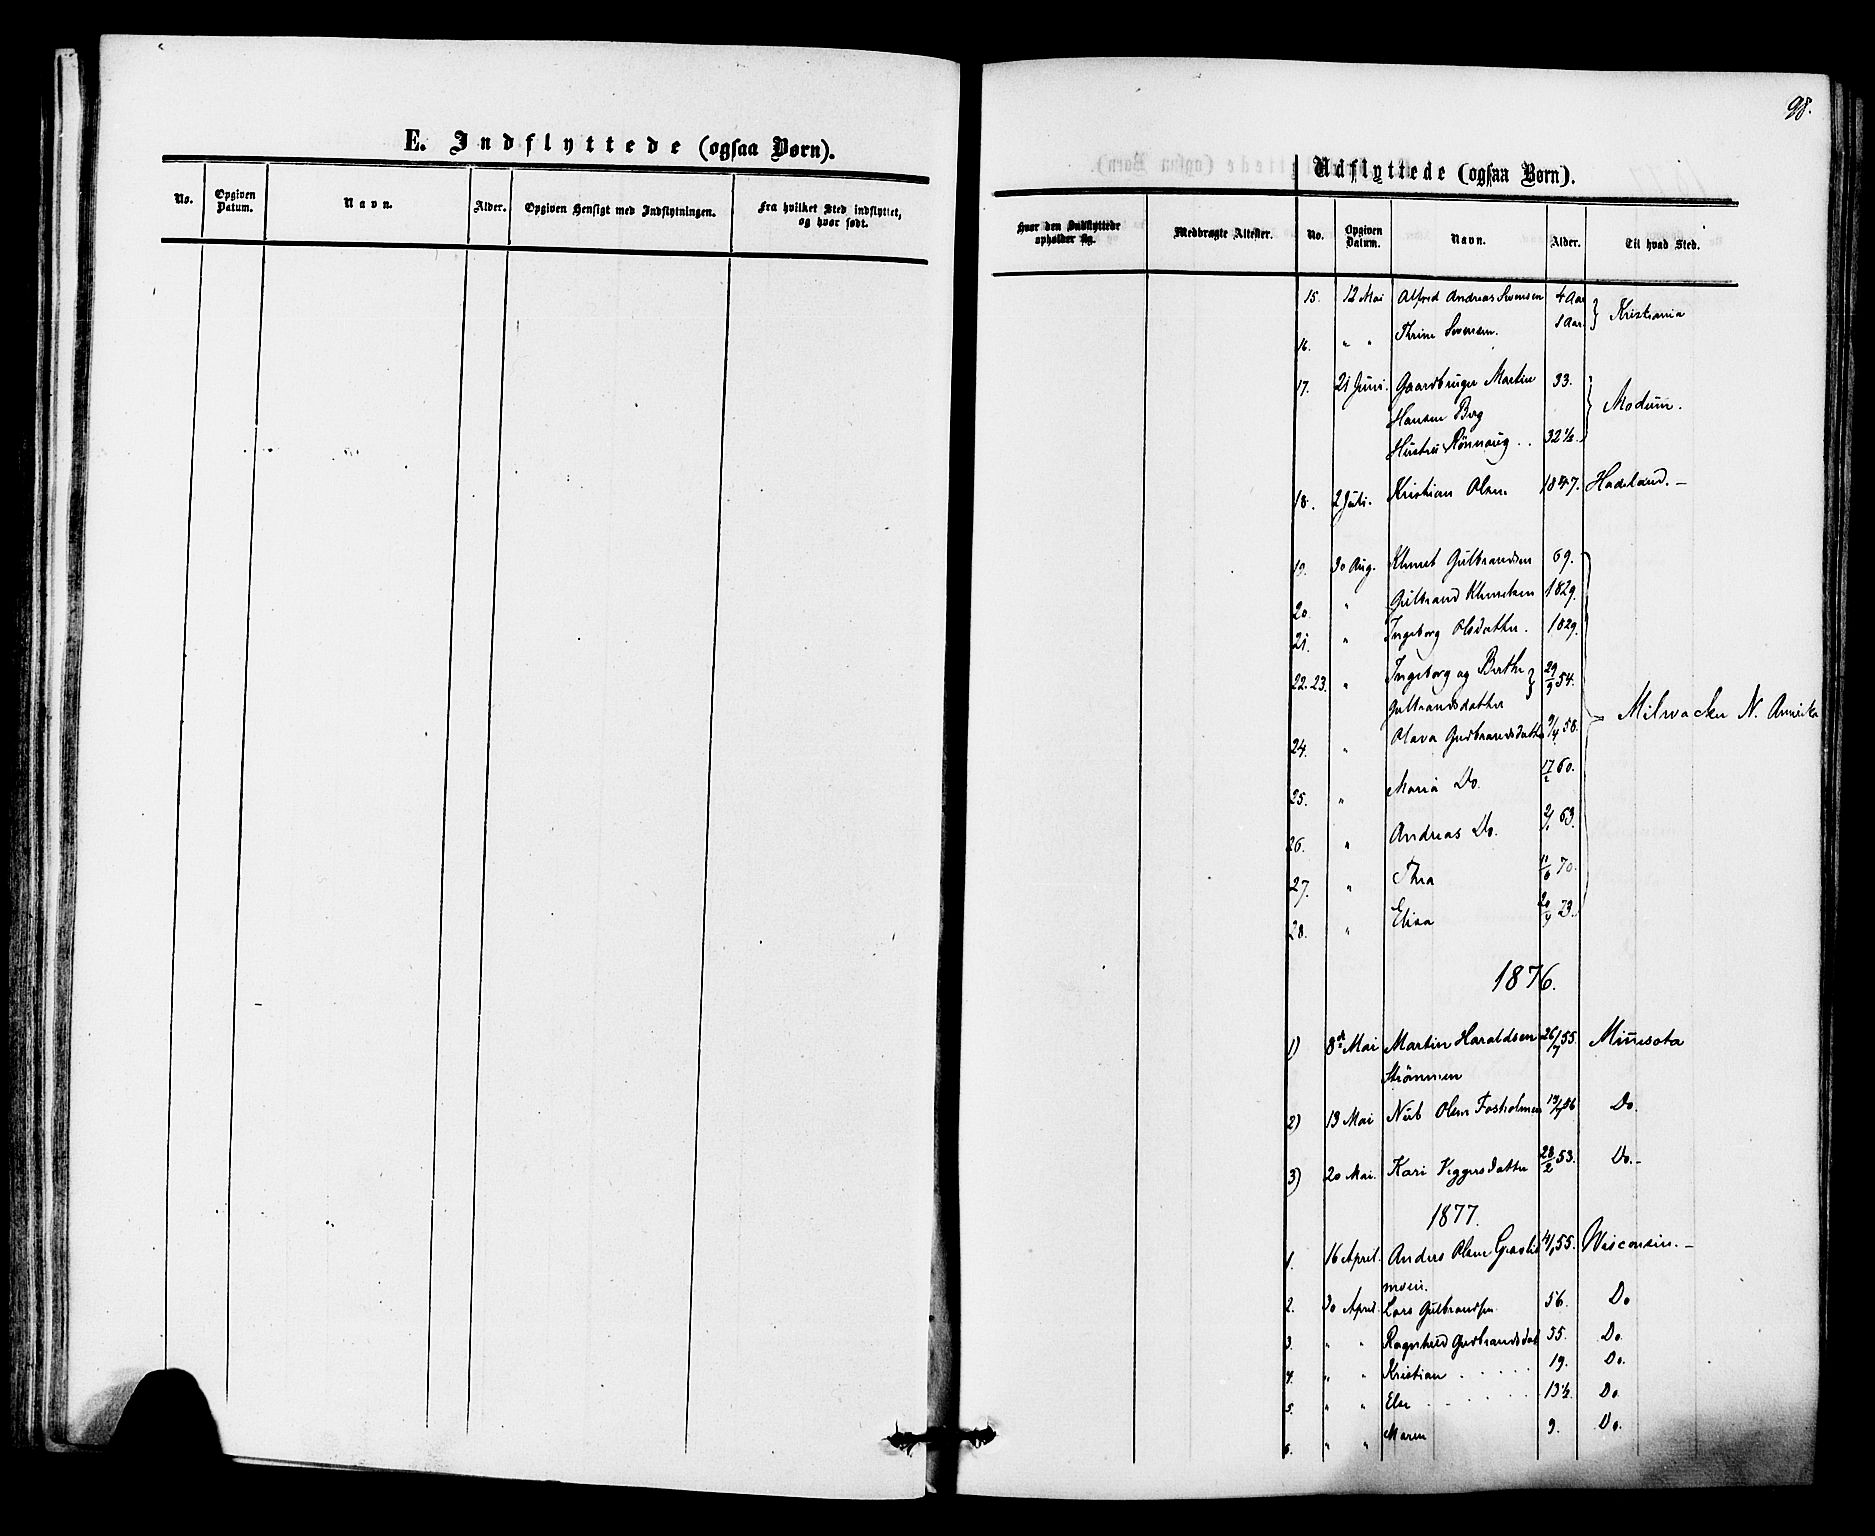 98.
E. Indflyttede (ogsaa Børn).
No. Opgiven Datum. Navn. Alder. Opgiven Hensigt med Indflytningen. Fra hvilket Sted indflyttet, og hvor født.
Udflyttede (ogsaa Børn).
Hvor den Indflyttede opholder sig. Medbragte Attester. No. Opgiven Datum. Navn. Alder. Til hvad Sted.
15. 12 Mai Alfred Andreas Svensen 4 Aar } Kristiania
16. " " Thrine Svensen. 1 Aar.
17. 21 Juni. Gaardbruger Martin 33. } Modum.
Hansen Berg
Hustru Rønnaug . . 32 ½.
18. 2 Juli. Kristian Olsen 1847. Hadeland. –
19. 30 Aug. Klemet Gulbrandsen 69.
20. " Gulbrand Klemetsen 1829.
21. " Ingeborg Olsdatter. 1829.
22. 23. " Ingeborg og Berthe } 29/9 54.
Gulbrandsdatter
Milwackee N. Amerika
24. " Olava Gudbrandsdatter 9/4 58.
25. " Maria Do. 17/2 60.
26. " Andreas Do. 2/1 63.
27. " Thea 11/6 70.
28. " Elisa 20/4 73.
1876.
1) 8de Mai Martin Haraldsen 26/7 55. Minnesota
Strømmen
2) 13 Mai Nub Olsen Fosholmen 13/7 56 Do.
3) 20 Mai. Kari Viggersdatter 28/2 53. Do. –
1877.
1. 16 April. Anders Olsen Graslie 4/1 55. Wisconsin. –
moen.
2. 30 April. Lars Gulbrandsen 56. Do
3. " " Ragnhild Gudbrandsdat 55. Do.
4. " " Kristian . . . . 19. Do.
5. " " Else . . . . . 13 ½. Do.
6. " " Maren 9. Do.